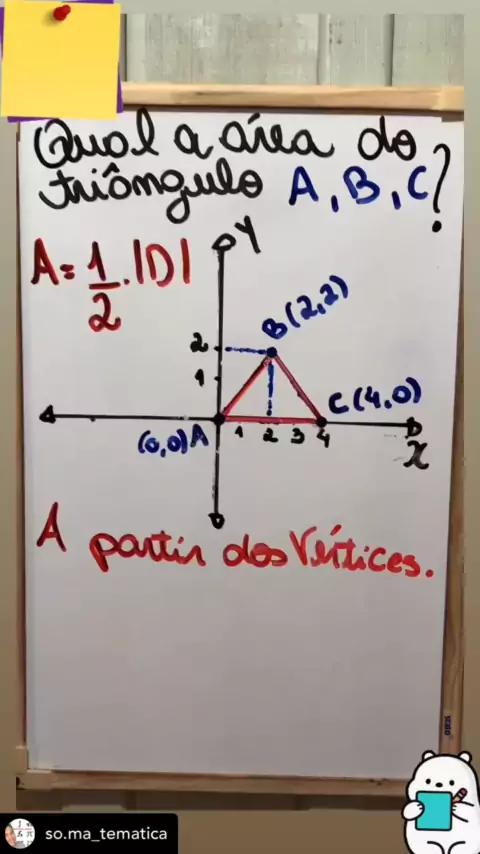 Qual a área do
triângulo A, B, C?
A = 1/2 . |D|
Y
B(2,2)
2
1
C(4,0)
(0,0) A 1 2 3 4
X
A partir dos Vértices.
so.ma_tematica